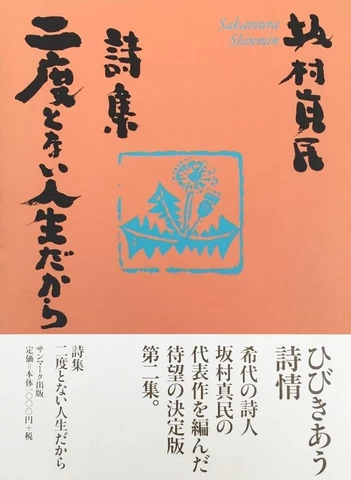 坂村真民
Sakamura
Shinmin
詩集
二度とない人生だから
ひびきあう
詩情
希代の詩人
坂村真民の
代表作を編んだ
待望の決定版
第二集。
詩集
二度とない人生だから
サンマーク出版
定価=本体一〇〇〇円+税